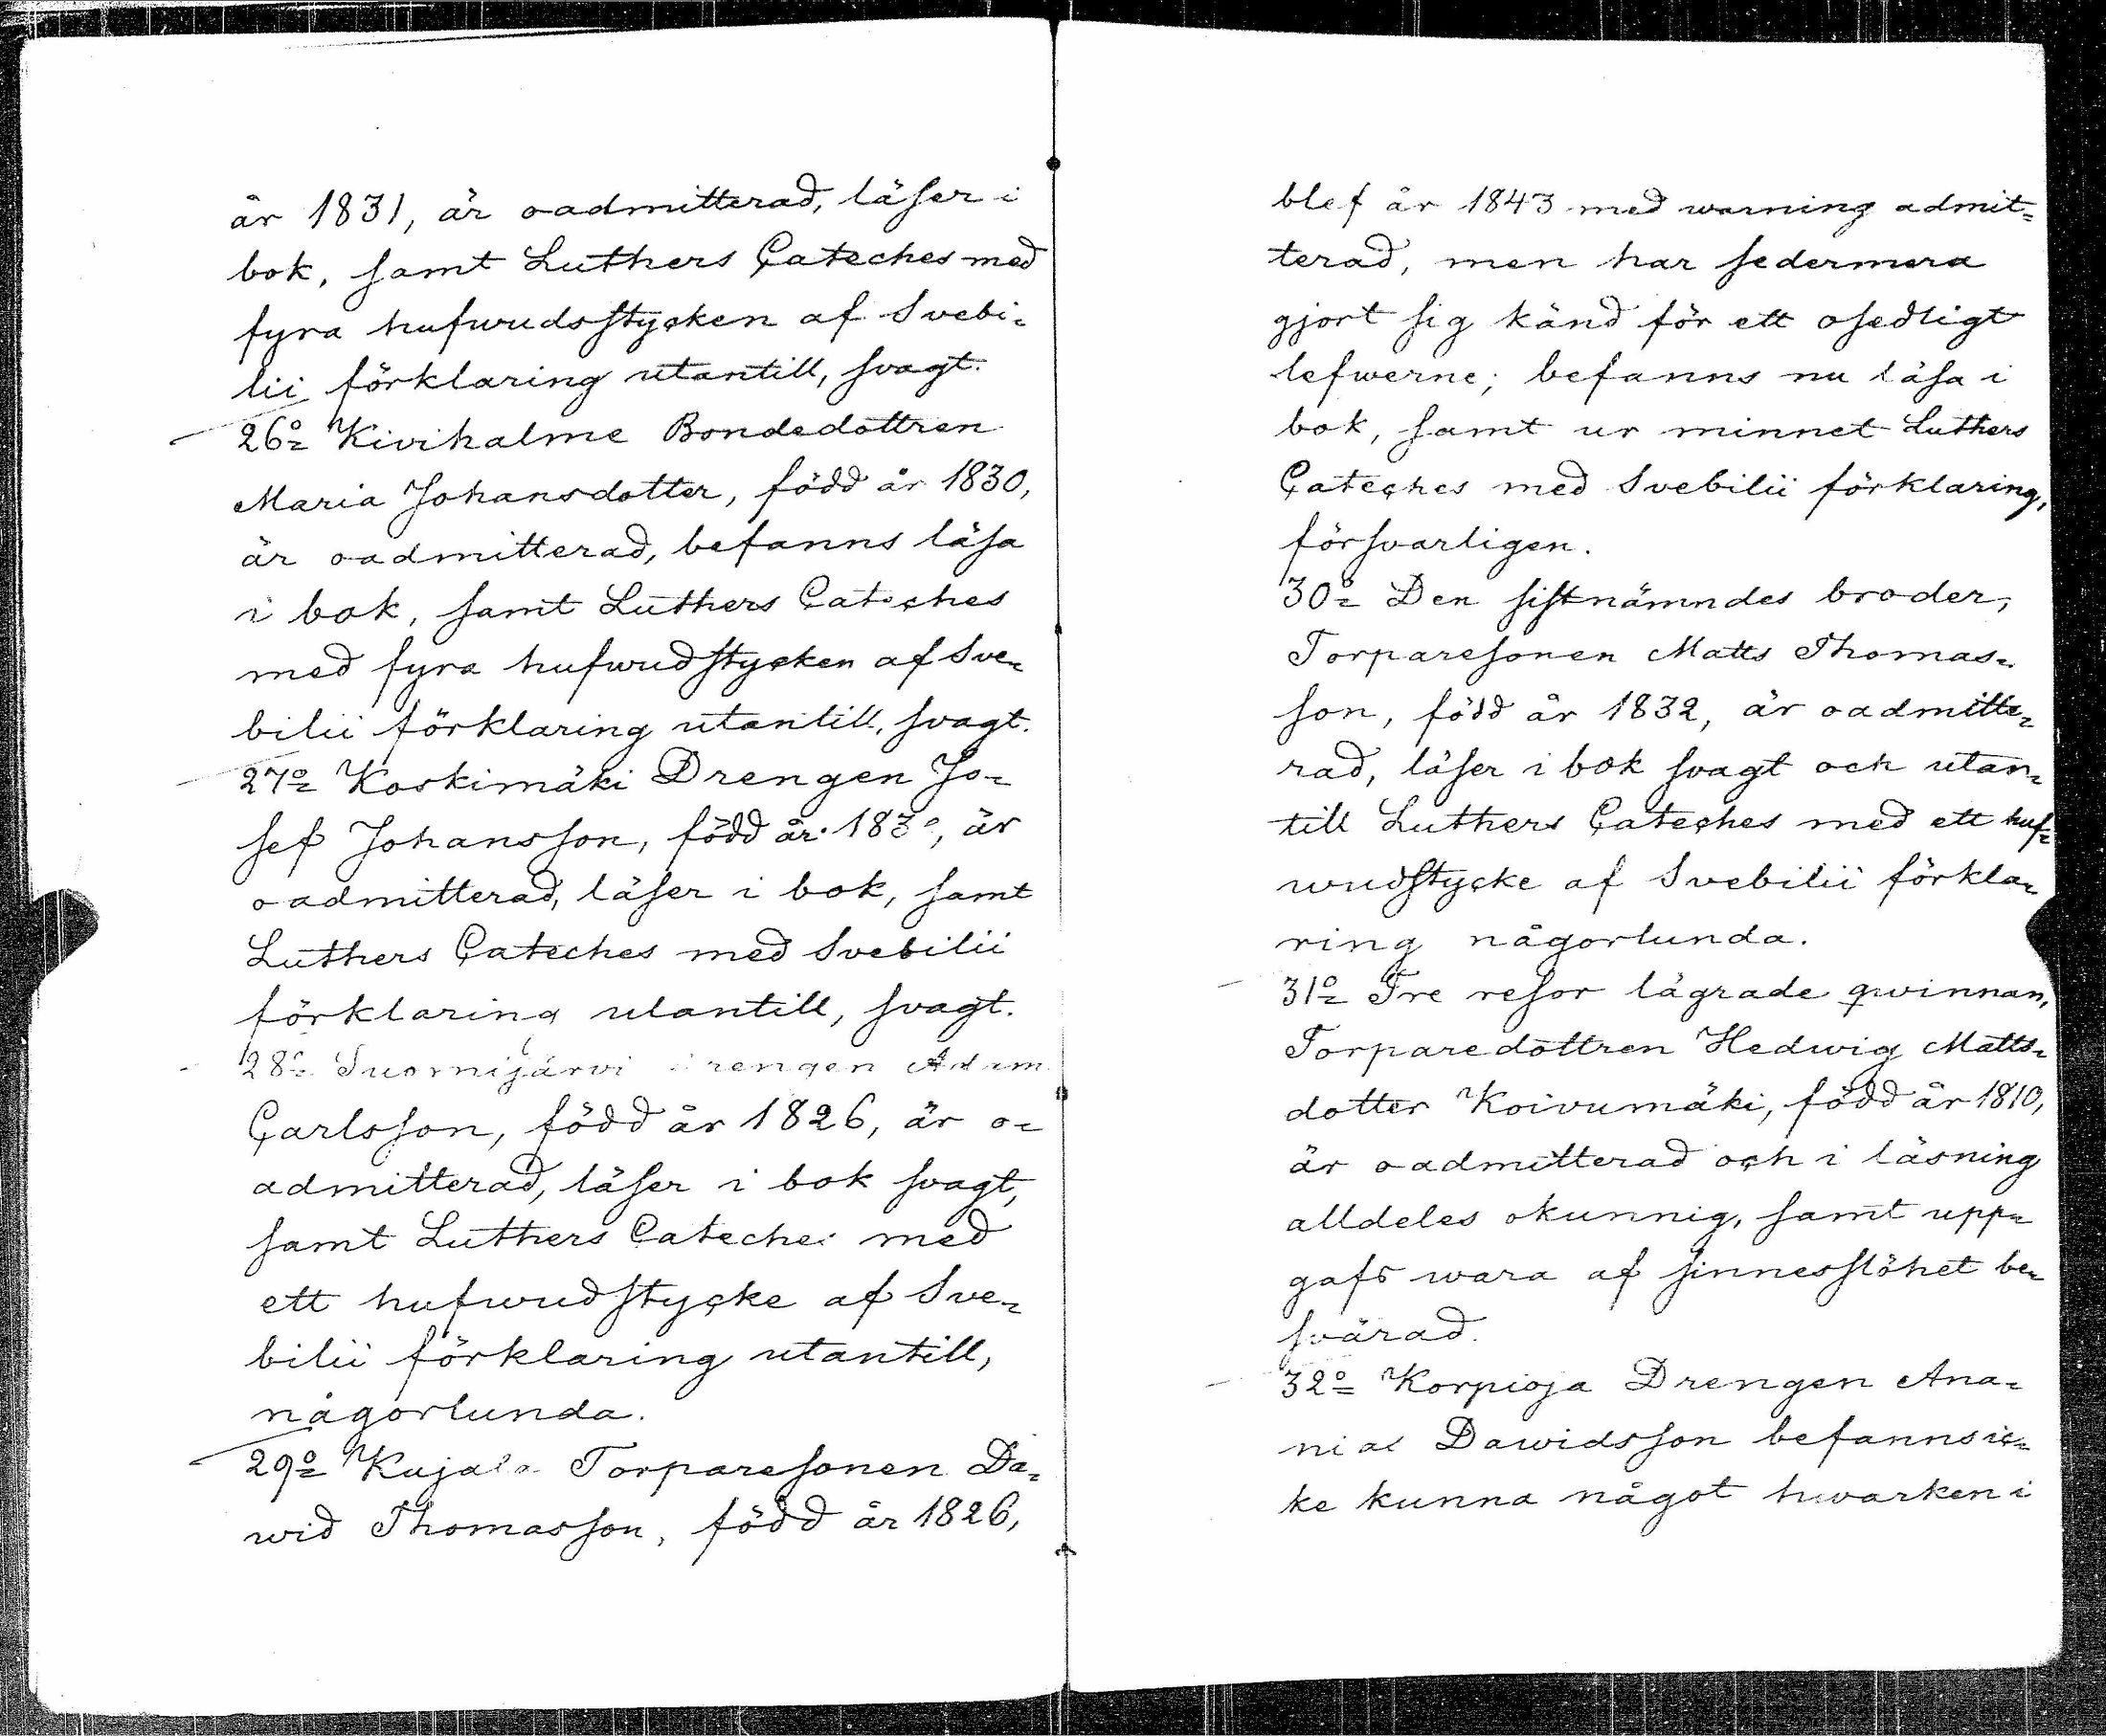 år 1831, är oadmitterad, läser i
bok, samt Luthers Cateches med
fyra hufwudsstycken af Svebi-
lii förklaring utantill, svagt.
26o= Kivihalme Bondedottren
Maria Johansdotter, född år 1830,
är oadmitterad, befanns läsa
i bok, samt Luthers Cateches
med fyra hufwudstycken af Sve-
bilii förklaring utantill, svagt.
27o= Koskimäki Drengen Jo-
sef Johansson, född år 1830, är
oadmitterad, läser i bok, samt
Luthers Cateches med Svebilii
förklaring utantill, svagt.
28o= Suomijärvi Drengen Adam
Carlsson, född år 1826, är o-
admitterad, läser i bok svagt,
samt Luthers Cateches med
ett hufwudstycke af Sve-
bilii förklaring utantill,
någorlunda.
29o= Kujala Torparesonen Da-
wid Thomasson, född år 1826,
blef år 1843 med warning admit-
terad, men har sedermera
gjort sig känd för ett osedligt
lefwerne; befanns nu läsa i
bok, samt ur minnet Luthers
Cateches med Svebilii förklaring,
försvarligen.
30o= Den sistnämndes broder,
Torparesonen Matts Thomas-
son, född år 1832, är oadmitte-
rad, läser i bok svagt och utan-
till Luthers Cateches med ett huf-
wudstycke af Svebilii förkla-
ring någorlunda.
31o= Tre resor lägrade qwinnan,
Torparedottren Hedwig Matts-
dotter Koivumäki, född år 1810,
är oadmitterad och i läsning
alldeles okunnig, samt upp-
gafs wara af sinnesslöhet be-
svärad.
32o= Korpioja Drengen Ana-
nias Dawidsson befanns ic-
ke kunna något hwarken i